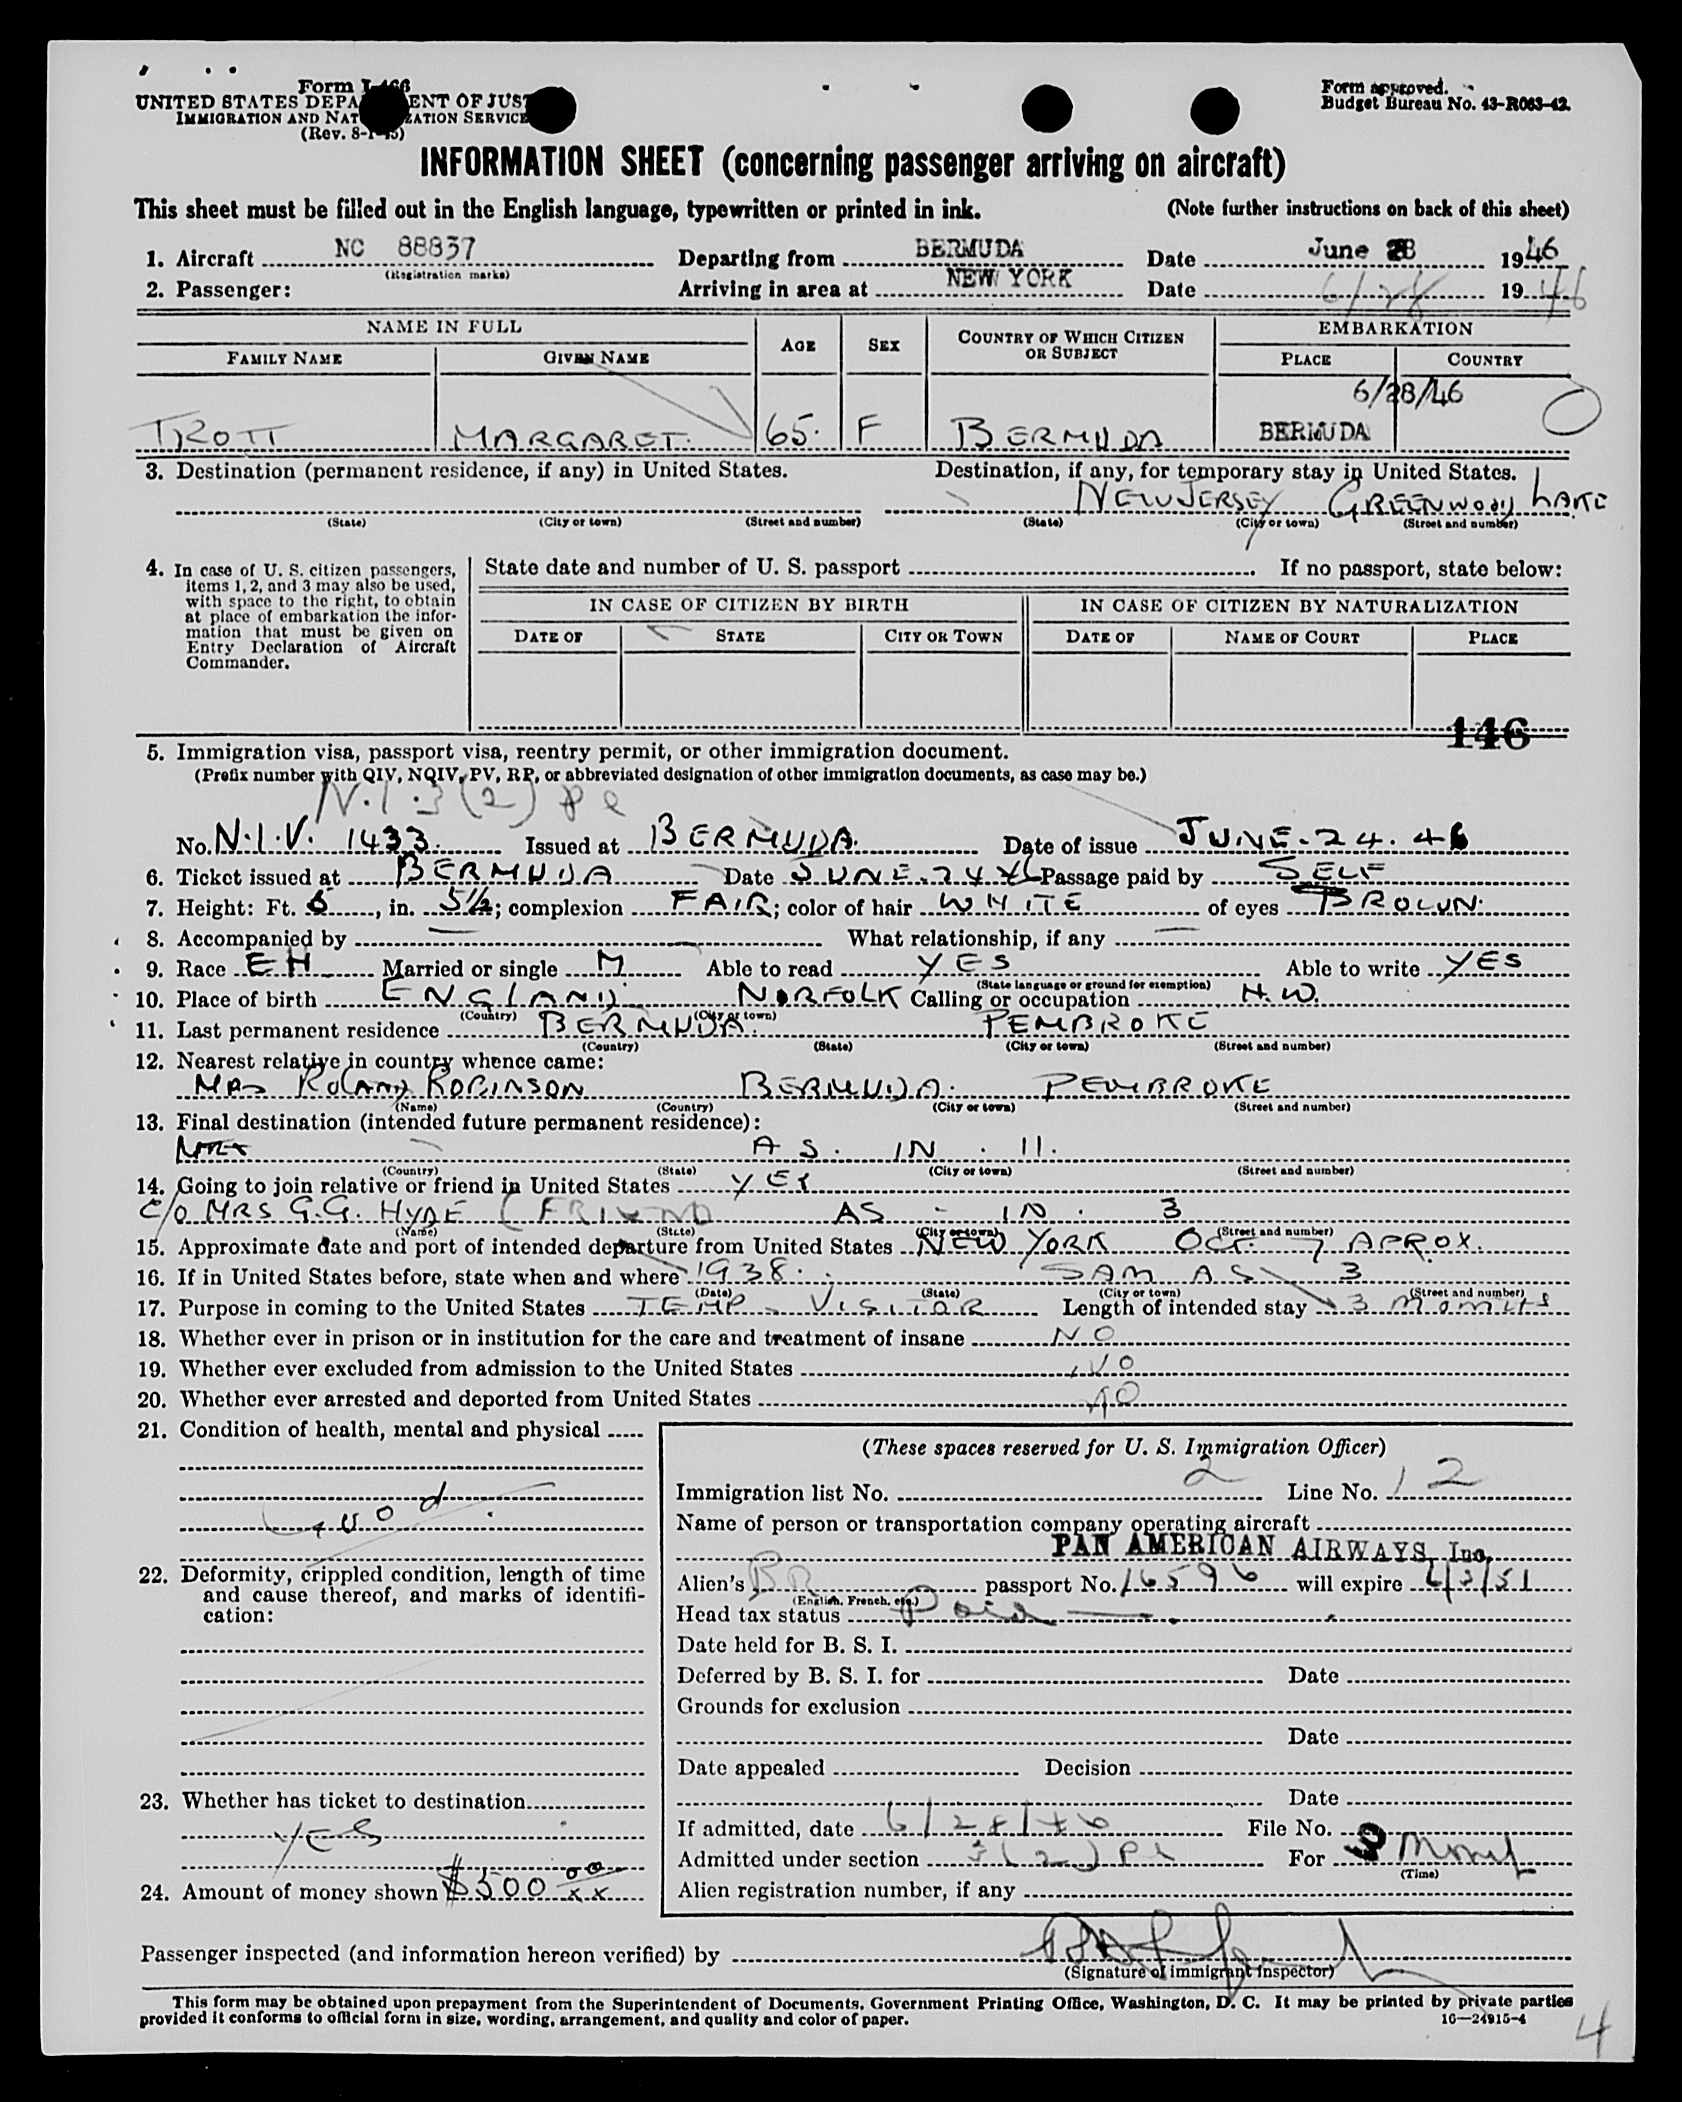 Form I-466
UNITED STATES DEPARTMENT OF JUST
IMMIGRATION AND NATURALIZATION SERVICE
(Rev. 8-1-45)
Form approved.
Budget Bureau No. 43-R063-42.
INFORMATION SHEET (concerning passenger arriving on aircraft)
This sheet must be filled out in the English language, typewritten or printed in ink. (Note further instructions on back of this sheet)
1. Aircraft NC 88837 Departing from BERMUDA Date June 28 1946
(Registration marks)
2. Passenger: Arriving in area at NEW YORK Date 6/28 1946
NAME IN FULL AGE SEX COUNTRY OF WHICH CITIZEN OR SUBJECT EMBARKATION
FAMILY NAME GIVEN NAME PLACE COUNTRY
6/28/46
TROTT MARGARET. 65. F BERMUDA BERMUDA
3. Destination (permanent residence, if any) in United States. Destination, if any, for temporary stay in United States.
NEW JERSEY GREENWOOD LAKE
(State) (City or town) (Street and number) (State) (City or town) (Street and number)
4. In case of U. S. citizen passengers, items 1, 2, and 3 may also be used, with space to the right, to obtain at place of embarkation the information that must be given on Entry Declaration of Aircraft Commander.
State date and number of U. S. passport If no passport, state below:
IN CASE OF CITIZEN BY BIRTH IN CASE OF CITIZEN BY NATURALIZATION
DATE OF STATE CITY OR TOWN DATE OF NAME OF COURT PLACE
146
5. Immigration visa, passport visa, reentry permit, or other immigration document.
(Prefix number with QIV, NQIV, PV, RP, or abbreviated designation of other immigration documents, as case may be.)
N.I.3(2)
No. N.I.V. 1433. Issued at BERMUDA. Date of issue JUNE-24.46
6. Ticket issued at BERMUDA Date JUNE.24 46 Passage paid by SELF
7. Height: Ft. 5, in. 5½; complexion FAIR; color of hair WHITE of eyes BROWN.
8. Accompanied by — What relationship, if any —
9. Race EH Married or single M Able to read YES Able to write YES
(State language or ground for exemption)
10. Place of birth ENGLAND NORFOLK Calling or occupation H.W.
(Country) (City or town)
11. Last permanent residence BERMUDA. PEMBROKE
(Country) (State) (City or town) (Street and number)
12. Nearest relative in country whence came:
MRS ROLAND ROBINSON BERMUDA. PEMBROKE
(Name) (Country) (City or town) (Street and number)
13. Final destination (intended future permanent residence):
AS. IN. 11.
(Country) (State) (City or town) (Street and number)
14. Going to join relative or friend in United States YES
C/O MRS G.G. HYDE (FRIEND AS - IN. 3
(Name) (State) (City or town) (Street and number)
15. Approximate date and port of intended departure from United States NEW YORK OCT. 7 APROX.
16. If in United States before, state when and where 1938. SAM AS 3
(Date) (State) (City or town) (Street and number)
17. Purpose in coming to the United States TEMP - VISITOR Length of intended stay 3 MONTHS
18. Whether ever in prison or in institution for the care and treatment of insane NO
19. Whether ever excluded from admission to the United States NO
20. Whether ever arrested and deported from United States NO
21. Condition of health, mental and physical
Good.
22. Deformity, crippled condition, length of time and cause thereof, and marks of identification:
23. Whether has ticket to destination
YES
24. Amount of money shown $500 00/xx
(These spaces reserved for U. S. Immigration Officer)
Immigration list No. 2 Line No. 12
Name of person or transportation company operating aircraft
PAN AMERICAN AIRWAYS, Inc.
Alien's BR passport No. 16596 will expire 6/3/51
(English, French, etc.)
Head tax status Paid
Date held for B. S. I.
Deferred by B. S. I. for Date
Grounds for exclusion
Date
Date appealed Decision
Date
If admitted, date 6/28/46 File No.
Admitted under section 3(2) For 3 Months
(Time)
Alien registration number, if any
Passenger inspected (and information hereon verified) by
(Signature of immigrant inspector)
This form may be obtained upon prepayment from the Superintendent of Documents, Government Printing Office, Washington, D. C. It may be printed by private parties
provided it conforms to official form in size, wording, arrangement, and quality and color of paper. 16—24915-4
4